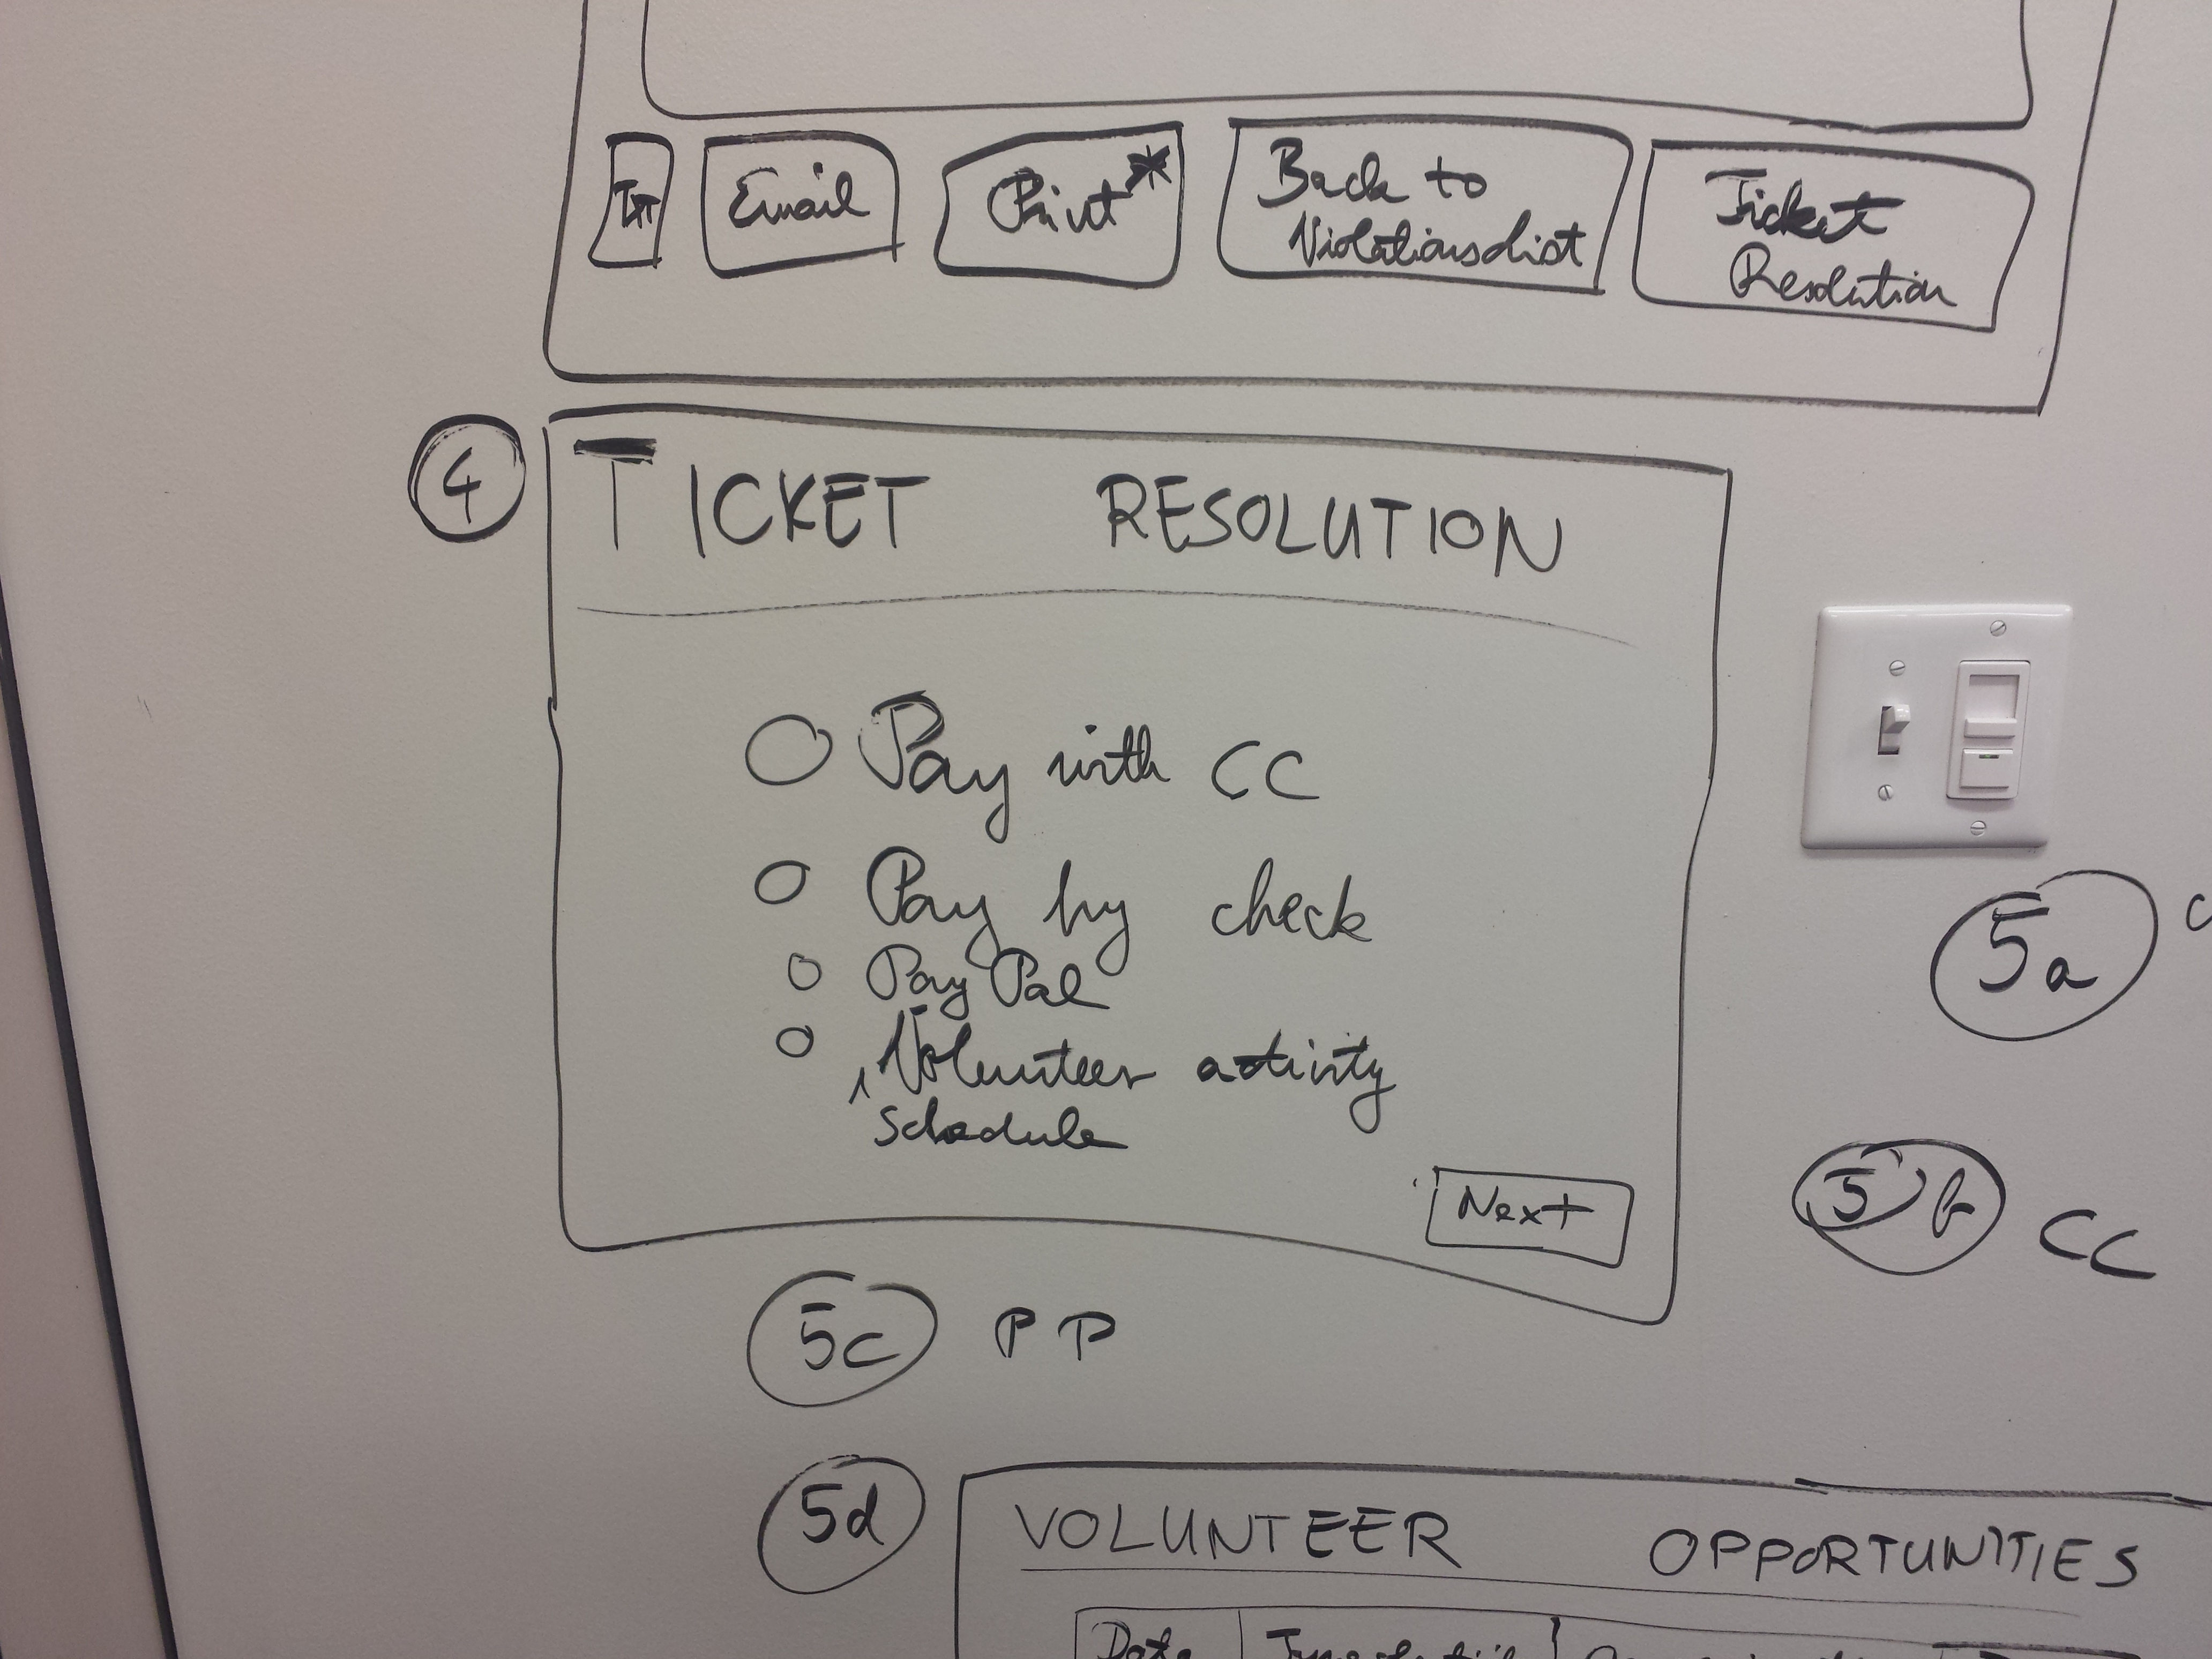 Email
Print*
Back to
Violations List
Ticket
Resolution
4
TICKET RESOLUTION
Pay with CC
Pay by check
PayPal
Volunteer activity
schedule
Next
5a
5b CC
5c PP
5d
VOLUNTEER OPPORTUNITIES
Date